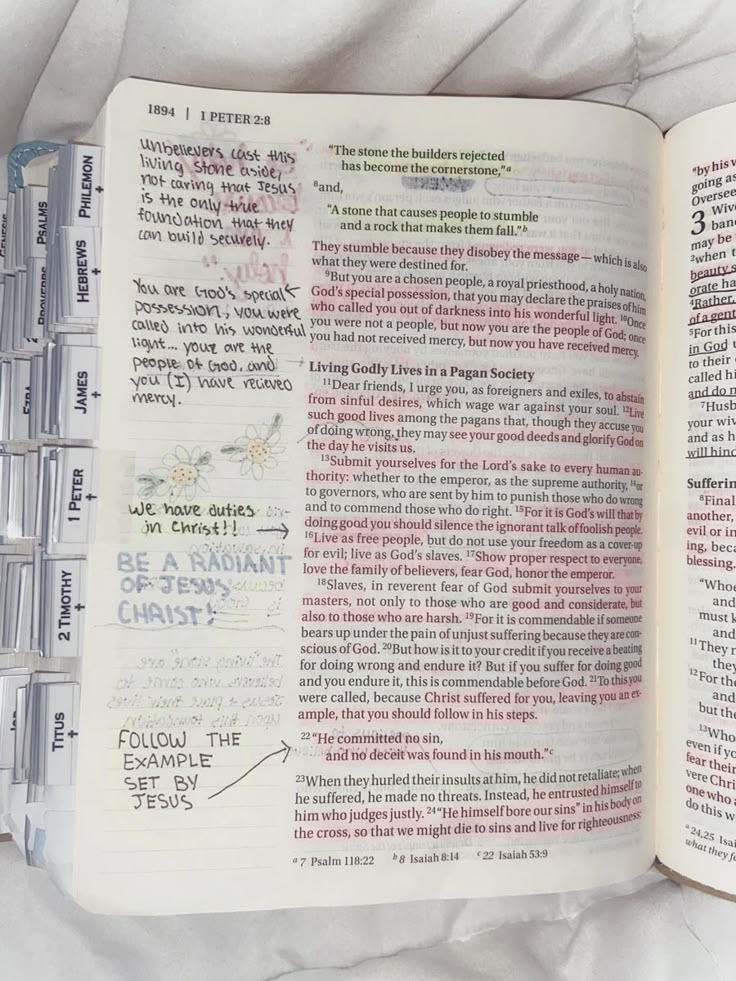 1894 | 1 PETER 2:8
unbelievers cast this
living stone aside,
not caring that Jesus
is the only true
foundation that they
can build securely.
You are God's special
possession, you were
called into his wonderful
light... your are the
people of God, and
you (I) have recived
mercy.
We have duties
in Christ!!
BE A RADIANT
OF JESUS
CHRIST!
FOLLOW THE
EXAMPLE
SET BY
JESUS
"The stone the builders rejected
has become the cornerstone,"a
8and,
"A stone that causes people to stumble
and a rock that makes them fall."b
They stumble because they disobey the message — which is also
what they were destined for.
9But you are a chosen people, a royal priesthood, a holy nation,
God's special possession, that you may declare the praises of him
who called you out of darkness into his wonderful light. 10Once
you were not a people, but now you are the people of God; once
you had not received mercy, but now you have received mercy.
Living Godly Lives in a Pagan Society
11Dear friends, I urge you, as foreigners and exiles, to abstain
from sinful desires, which wage war against your soul. 12Live
such good lives among the pagans that, though they accuse you
of doing wrong, they may see your good deeds and glorify God on
the day he visits us.
13Submit yourselves for the Lord's sake to every human au-
thority: whether to the emperor, as the supreme authority, 14or
to governors, who are sent by him to punish those who do wrong
and to commend those who do right. 15For it is God's will that by
doing good you should silence the ignorant talk of foolish people.
16Live as free people, but do not use your freedom as a cover-up
for evil; live as God's slaves. 17Show proper respect to everyone,
love the family of believers, fear God, honor the emperor.
18Slaves, in reverent fear of God submit yourselves to your
masters, not only to those who are good and considerate, but
also to those who are harsh. 19For it is commendable if someone
bears up under the pain of unjust suffering because they are con-
scious of God. 20But how is it to your credit if you receive a beating
for doing wrong and endure it? But if you suffer for doing good
and you endure it, this is commendable before God. 21To this you
were called, because Christ suffered for you, leaving you an ex-
ample, that you should follow in his steps.
22"He committed no sin,
and no deceit was found in his mouth."c
23When they hurled their insults at him, he did not retaliate; when
he suffered, he made no threats. Instead, he entrusted himself to
him who judges justly. 24"He himself bore our sins" in his body on
the cross, so that we might die to sins and live for righteousness;
a 7 Psalm 118:22 b 8 Isaiah 8:14 c 22 Isaiah 53:9
PHILEMON
HEBREWS
JAMES
1 PETER
2 TIMOTHY
TITUS
PSALMS
PROVERBS
EZRA
GENESIS
"by his w
going as
Oversee
3 Wive
band
may be
2when t
beauty s
orate ha
4Rather,
of a gent
5For this
in God u
to their
called hi
and do n
7Husb
your wiv
and as h
will hind
Sufferin
8Final
another,
evil or in
ing, beca
blessing.
"Whoe
and
must k
and
11They r
they
12For the
and
but the
13Who
even if yo
fear their
vere Chri
one who a
do this w
a 24,25 Isai
what they fe